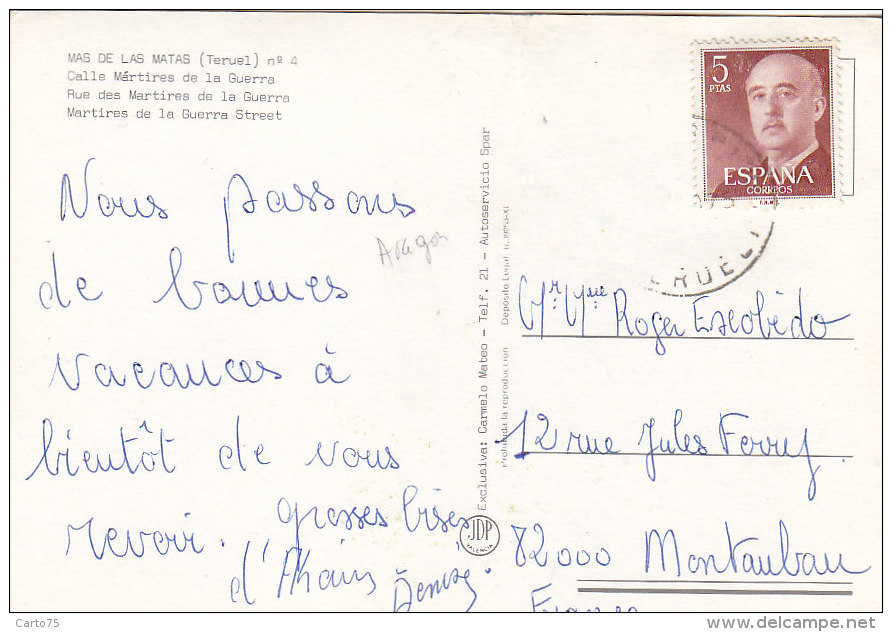 MAS DE LAS MATAS (Teruel) nº 4
Calle Mártires de la Guerra
Rue des Martires de la Guerra
Martires de la Guerra Street
5
PTAS
ESPAÑA
CORREOS
Nous passons
de bonnes
vacances à
bientôt de vous
revoir. grosses bises
d'Alain Denise.
Aragon
Exclusiva: Carmelo Mateo - Telf. 21 - Autoservicio Spar
Prohibida la reproducción
Depósito Legal
JDP
VALENCIA
Mr. Mme Roger Escobédo
12 rue Jules Ferry.
82000 Montauban
France
Carto75